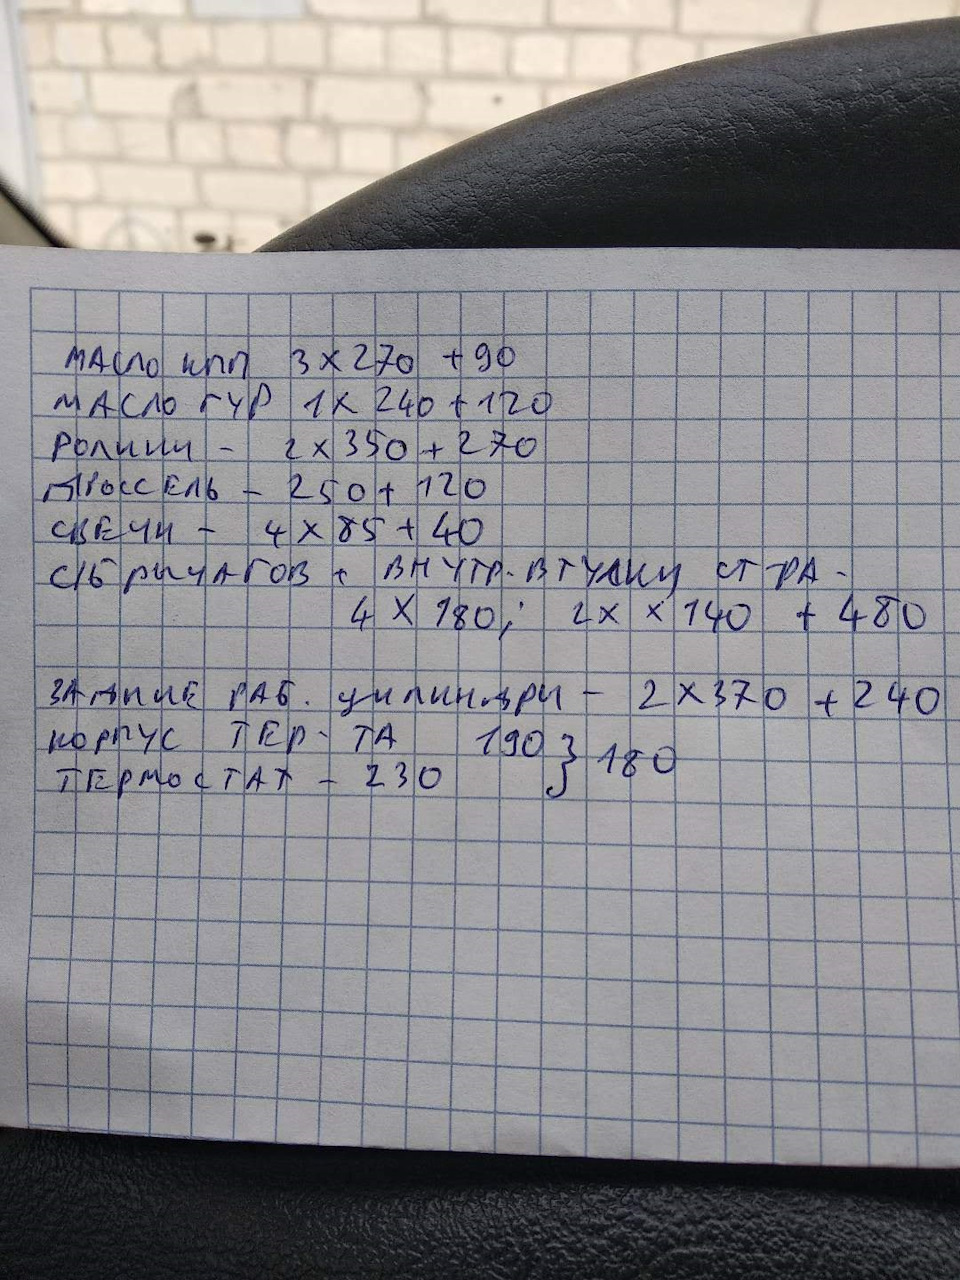 МАСЛО КПП 3 х 270 + 90
МАСЛО ГУР 1 х 240 + 120
РОЛИКИ - 2 х 350 + 270
ДРОССЕЛЬ - 250 + 120
СВЕЧИ - 4 х 85 + 40
С/Б РЫЧАГОВ + ВНУТР. ВТУЛКИ СТ-РА -
4 х 180; 2х х 140 + 480
ЗАДНИЕ РАБ. ЦИЛИНДРЫ - 2 х 370 + 240
КОРПУС ТЕР-ТА 190 } 180
ТЕРМОСТАТ - 230